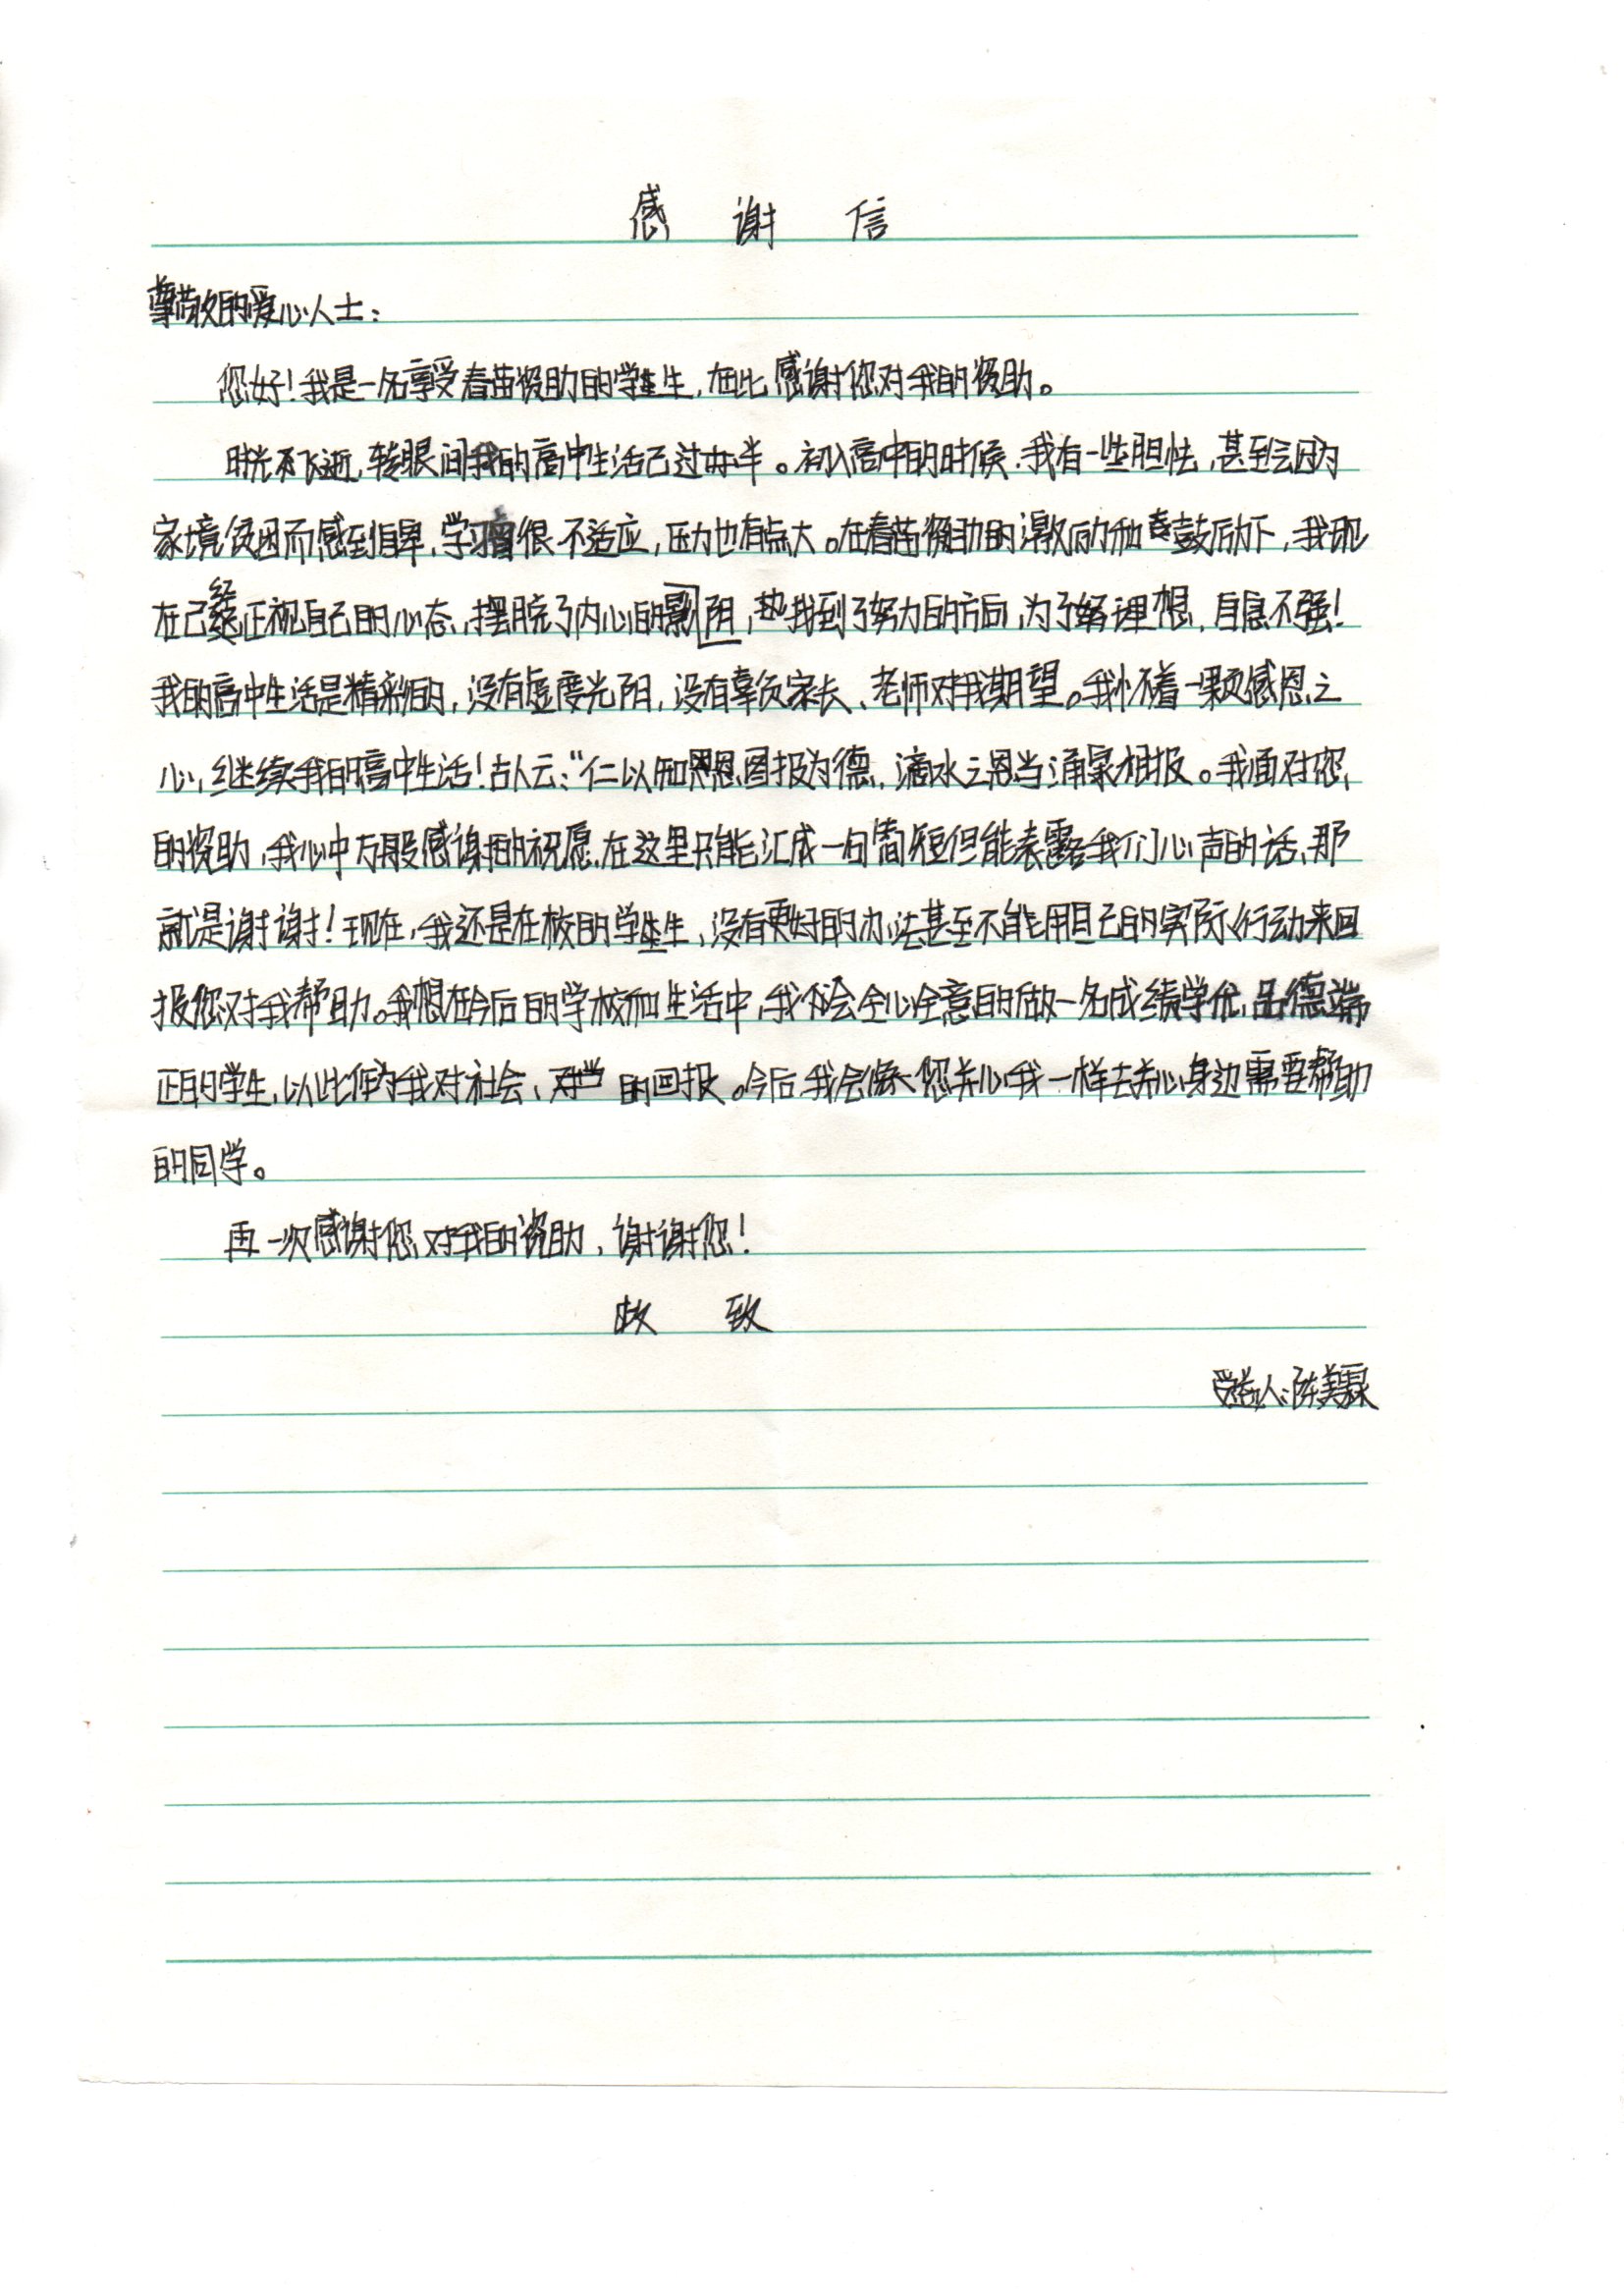 感 谢 信
尊敬的爱心人士：
您好！我是一名享受春苗资助的学生，在此感谢您对我的资助。
时光飞逝，转眼间我的高中生活已过大半。初入高中的时候，我有一些胆怯，甚至会因为
家境贫困而感到自卑，学习很不适应，压力也有点大。在春苗资助的激励和鼓励下，我现
在已经正视自己的心态，摆脱了内心的影阴，找到了努力的方向，为了理想，自息不强！
我的高中生活是精彩的，没有虚度光阴，没有辜负家长、老师对我期望。我怀着一颗感恩之
心，继续我的高中生活！古人云：“仁以知恩图报为德，滴水之恩当涌泉相报。我面对您
的资助，我心中万般感谢的祝愿，在这里只能汇成一句简短但能表露我们心声的话，那
就是谢谢！现在，我还是在校的学生，没有更好的办法甚至不能用自己的实际行动来回
报您对我帮助。我想在今后的学校和生活中，我会全心全意的做一名成绩学优，品德端
正的学生，以此作为我对社会、对 的回报。今后我会像您关心我一样去关心身边需要帮助
的同学。
再一次感谢您对我的资助，谢谢您！
致
受益人：陈美霖